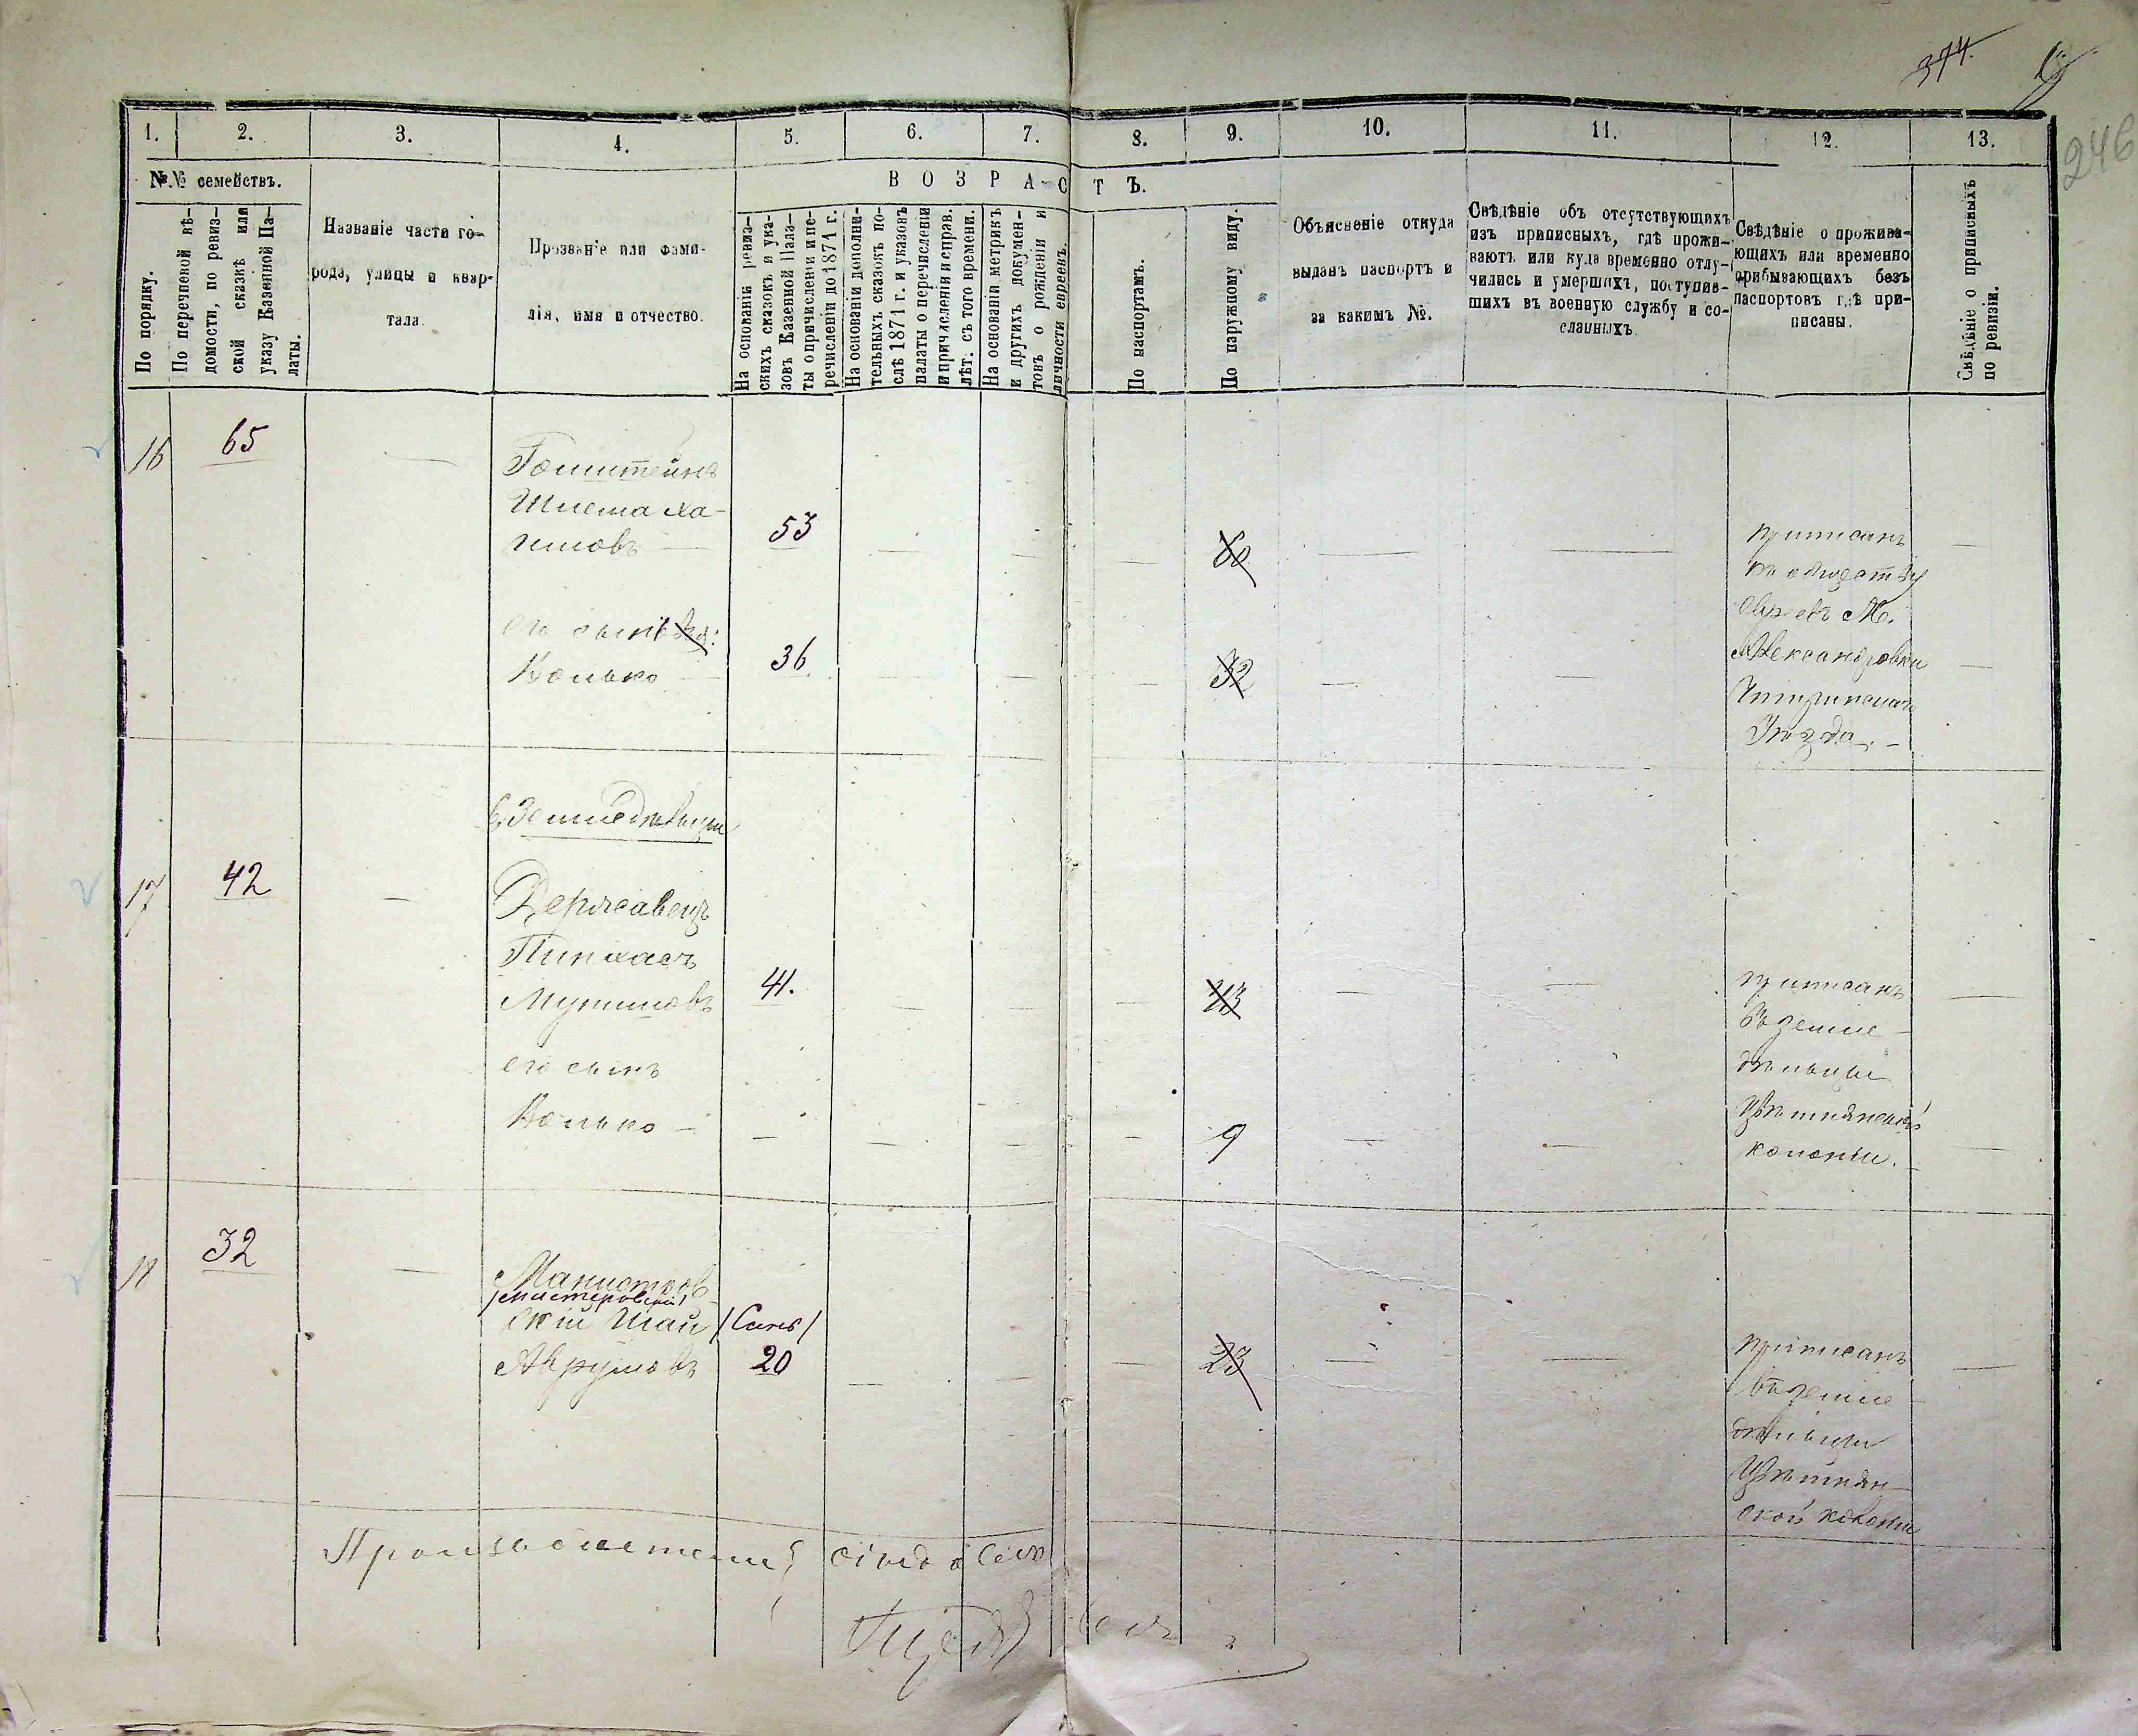 374.
246
1. 2. 3. 4. 5. 6. 7. 8. 9. 10. 11. 12. 13.
№№ семействъ.
ВОЗРАСТЪ.
По порядку.
По перечневой вѣ-
домости, по ревиз-
ской сказкѣ или
указу Казенной Па-
латы.
Названіе части го-
рода, улицы и квар-
тала.
Прозваніе или фами-
лія, имя и отчество.
На основаніи ревиз-
скихъ сказокъ и ука-
зовъ Казенной Пала-
ты о причисленіи и пе-
речисленіи до 1871 г.
На основаніи дополни-
тельныхъ сказокъ по-
слѣ 1871 г. и указовъ
палаты о перечисленіи
и причисленіи и справ.
лѣт: съ того времени.
На основаніи метрикъ
и другихъ докумен-
товъ о рожденіи и
личности евреевъ.
По паспортамъ.
По наружному виду.
Объясненіе откуда
выданъ паспортъ и
за какимъ №.
Свѣдѣніе объ отсутствующихъ
изъ приписныхъ, гдѣ прожи-
ваютъ или куда временно отлу-
чились и умершихъ, поступив-
шихъ въ военную службу и со-
сланныхъ.
Свѣдѣніе о прожива-
ющихъ или временно
прибывающихъ безъ
паспортовъ гдѣ при-
писаны.
Свѣдѣніе о приписныхъ
по ревизіи.
16 65
Гольштейнъ
Шлема Ха-
имовъ 53 60
его сынъ
Колько 36 32
приписанъ
къ обществу
Евреевъ М.
Александровки
Чигиринскаго
Уѣзда.
Земледѣльцы
17 42
Державецъ
Пинхасъ
41. 43
его сынъ
Колько 9
приписанъ
въ земле-
дѣльцы
колоніи.
18 32
скій Шай
/Сынъ/
Аврумовъ 20 23
приписанъ
въ земле-
дѣльцы
ской колоніи